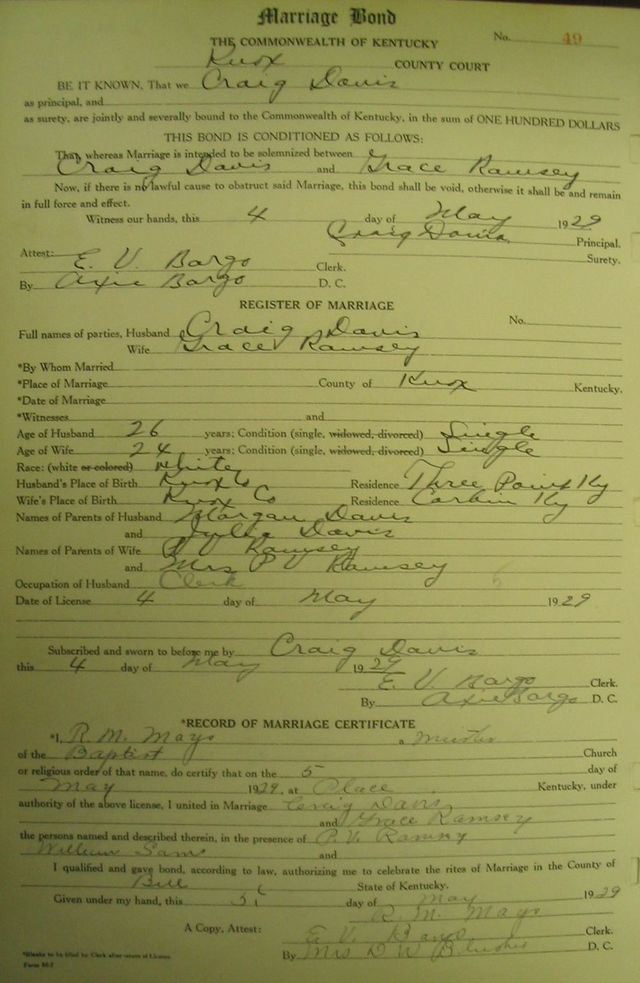 Marriage Bond
THE COMMONWEALTH OF KENTUCKY No. 49
Knox COUNTY COURT
BE IT KNOWN, That we Craig Davis
as principal, and
as surety, are jointly and severally bound to the Commonwealth of Kentucky, in the sum of ONE HUNDRED DOLLARS
THIS BOND IS CONDITIONED AS FOLLOWS:
That whereas Marriage is intended to be solemnized between
Craig Davis and Grace Ramsey
Now, if there is no lawful cause to obstruct said Marriage, this bond shall be void, otherwise it shall be and remain
in full force and effect.
Witness our hands, this 4 day of May 1929
Craig Davis Principal.
Attest: Surety.
E. V. Bargo Clerk.
By Axie Bargo D. C.
REGISTER OF MARRIAGE
No.
Full names of parties, Husband Craig Davis
Wife Grace Ramsey
*By Whom Married
*Place of Marriage County of Knox Kentucky.
*Date of Marriage
*Witnesses and
Age of Husband 26 years; Condition (single, widowed, divorced) Single
Age of Wife 24 years; Condition (single, widowed, divorced) Single
Race: (white or colored) white
Husband's Place of Birth Knox Co Residence Three Point Ky
Wife's Place of Birth Knox Co Residence Corbin Ky
Names of Parents of Husband Morgan Davis
and Davis
Names of Parents of Wife P V Ramsey
and Mrs P V Ramsey
Occupation of Husband Clerk
Date of License 4 day of May 1929
Subscribed and sworn to before me by Craig Davis
this 4 day of May 1929
E. V. Bargo Clerk.
By Axie Bargo D. C.
*RECORD OF MARRIAGE CERTIFICATE
*I, R. M. Mays a
of the Baptist Church
or religious order of that name, do certify that on the 5 day of
May 1929, at Place Kentucky, under
authority of the above license, I united in Marriage Craig Davis
and Grace Ramsey
the persons named and described therein, in the presence of P. V. Ramsey
William Sams and
I qualified and gave bond, according to law, authorizing me to celebrate the rites of Marriage in the County of
Bell State of Kentucky.
Given under my hand, this 5 day of May 1929
R. M. Mays
A Copy, Attest: E. V. Clerk.
By Mrs D W D. C.
*Blanks to be filled by Clerk after return of License